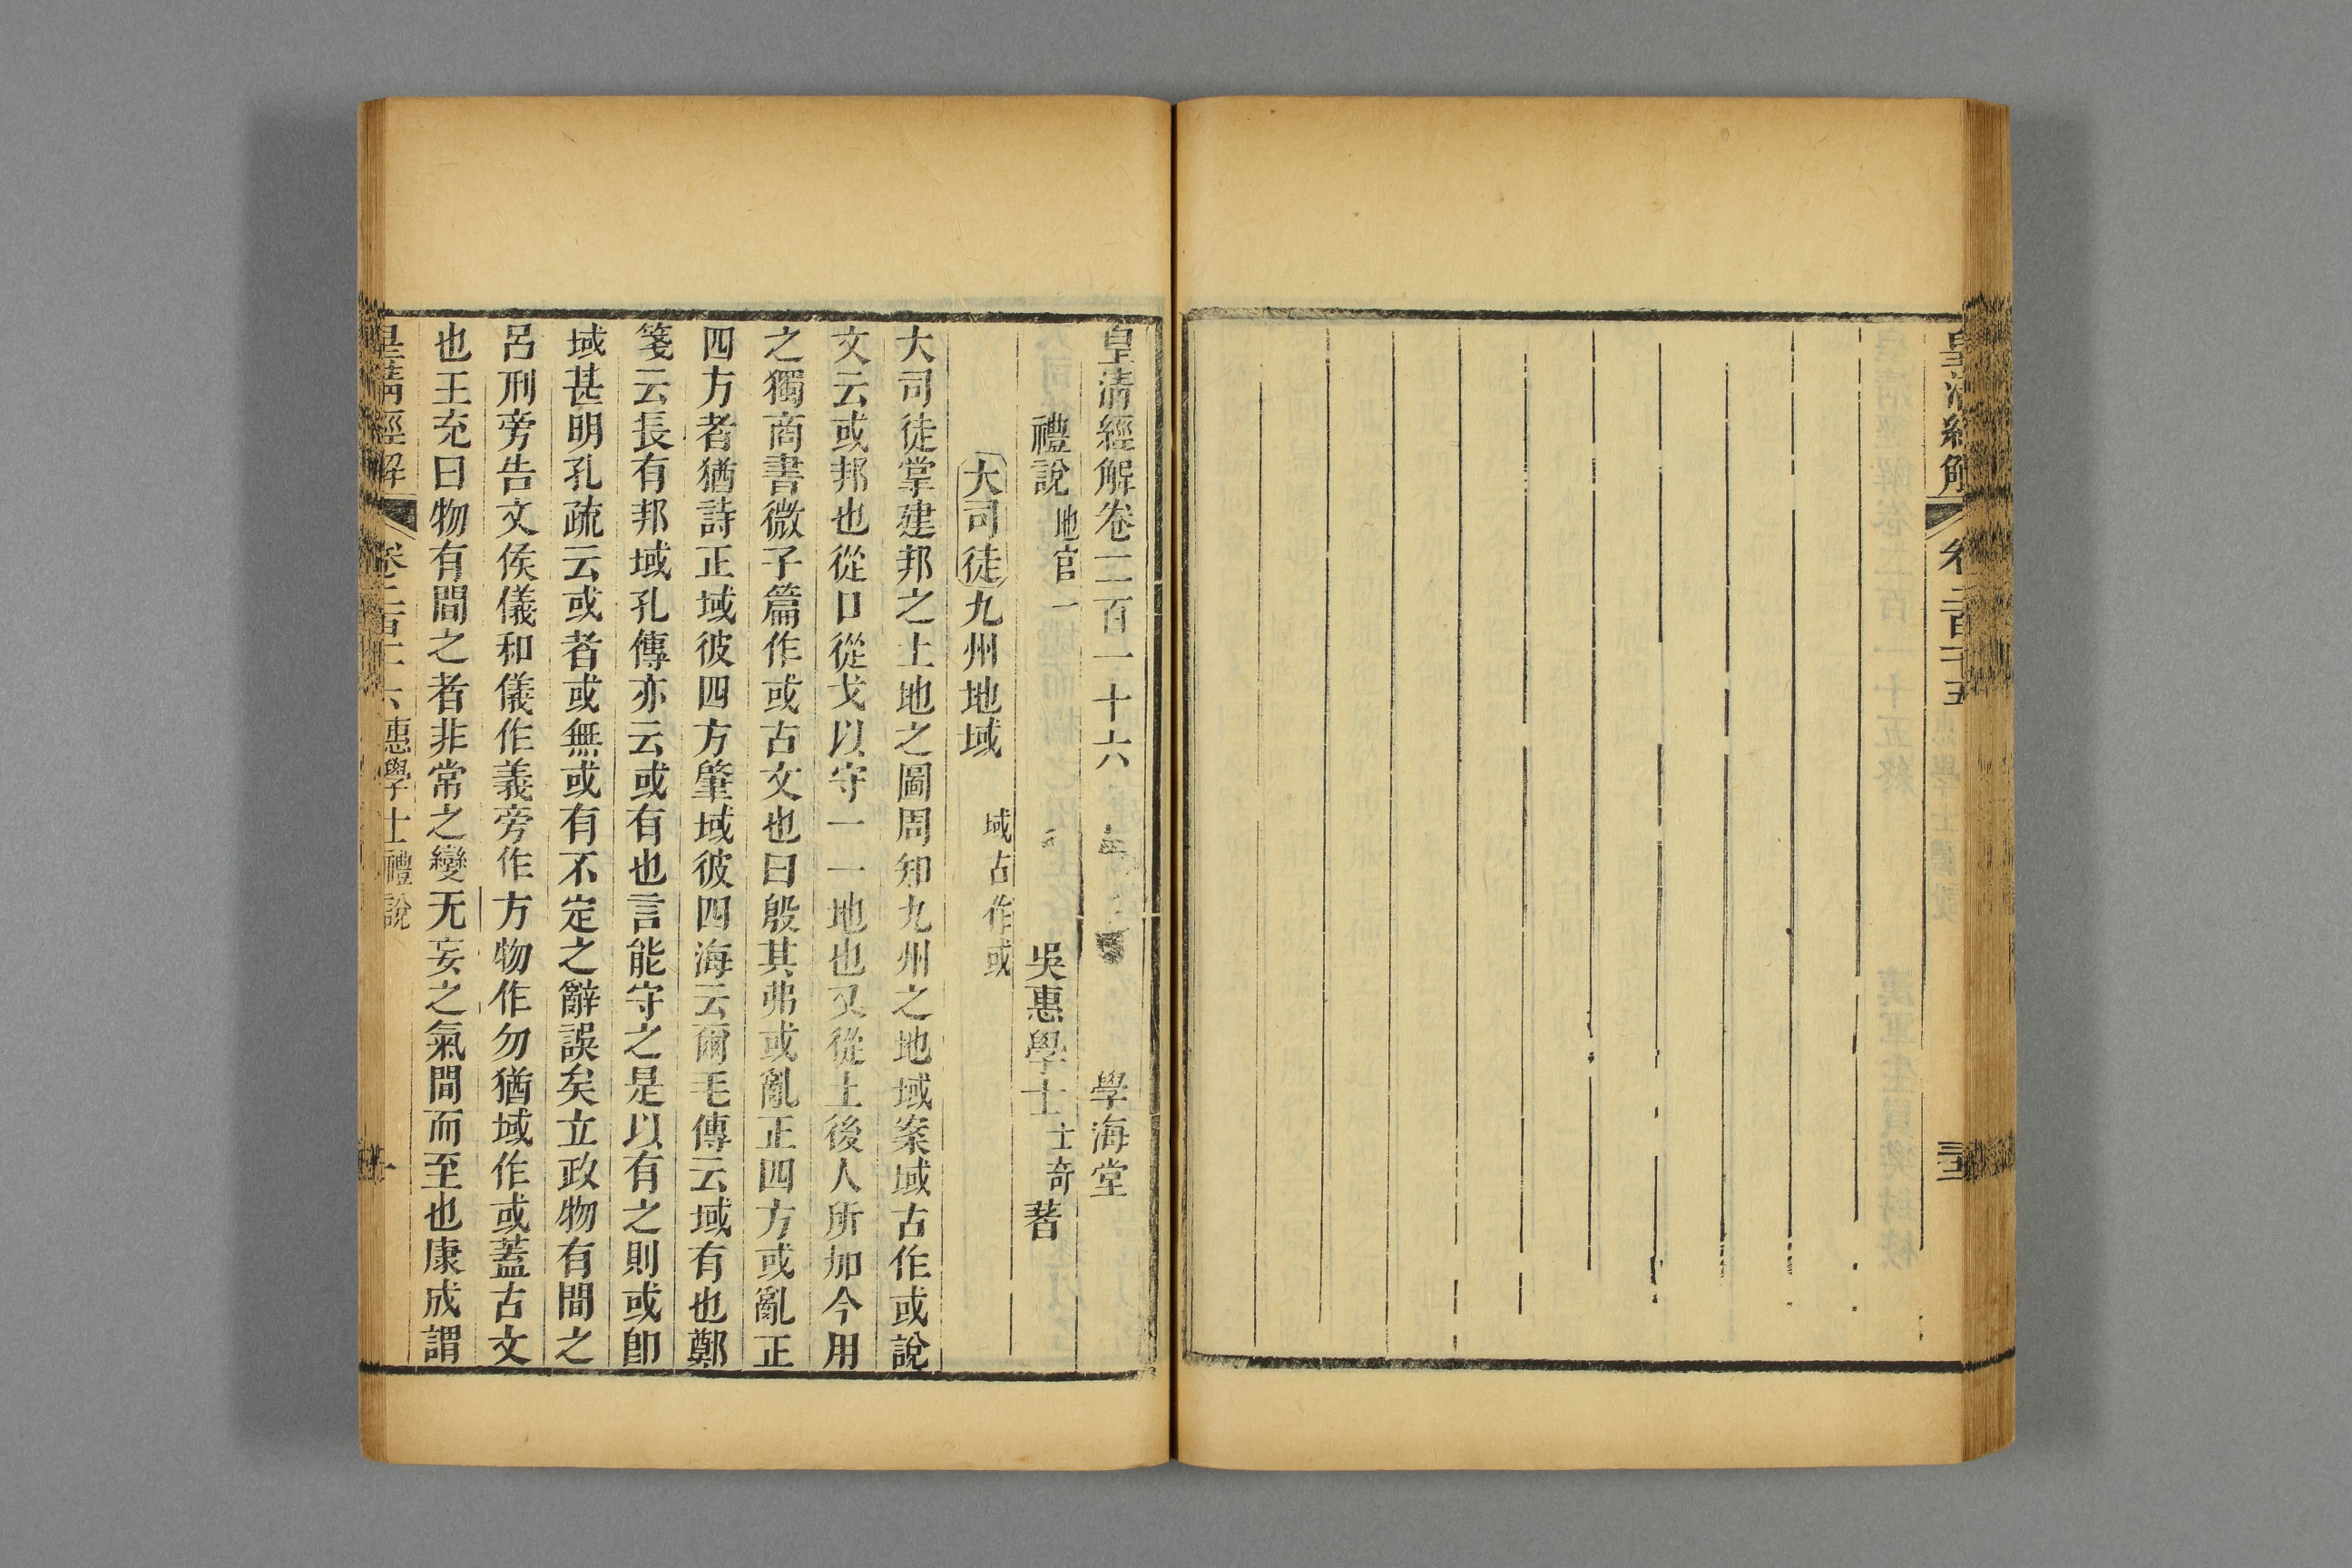 皇清經解
卷二百十五
皇清經解卷二百一十六 學海堂
禮說 地官一 吳惠學士士奇著
大司徒九州地域 域古作或
大司徒掌建邦之土地之圖周知九州之地域案域古作或說
文云或邦也從口從戈以守一一地也又從土後人所加今用
之獨商書微子篇作或古文也曰殷其弗或亂正四方或亂正
四方者猶詩正域彼四方肇域彼四海云爾毛傳云域有也鄭
箋云長有邦域孔傳亦云或有也言能守之是以有之則或卽
域甚明孔疏云或者或無或有不定之辭誤矣立政物有間之
呂刑旁告文侯儀和儀作義旁作方物作勿猶域作或蓋古文
也王充曰物有間之者非常之變无妄之氣間而至也康成謂
皇清經解
卷二百十六
惠學士禮說
一